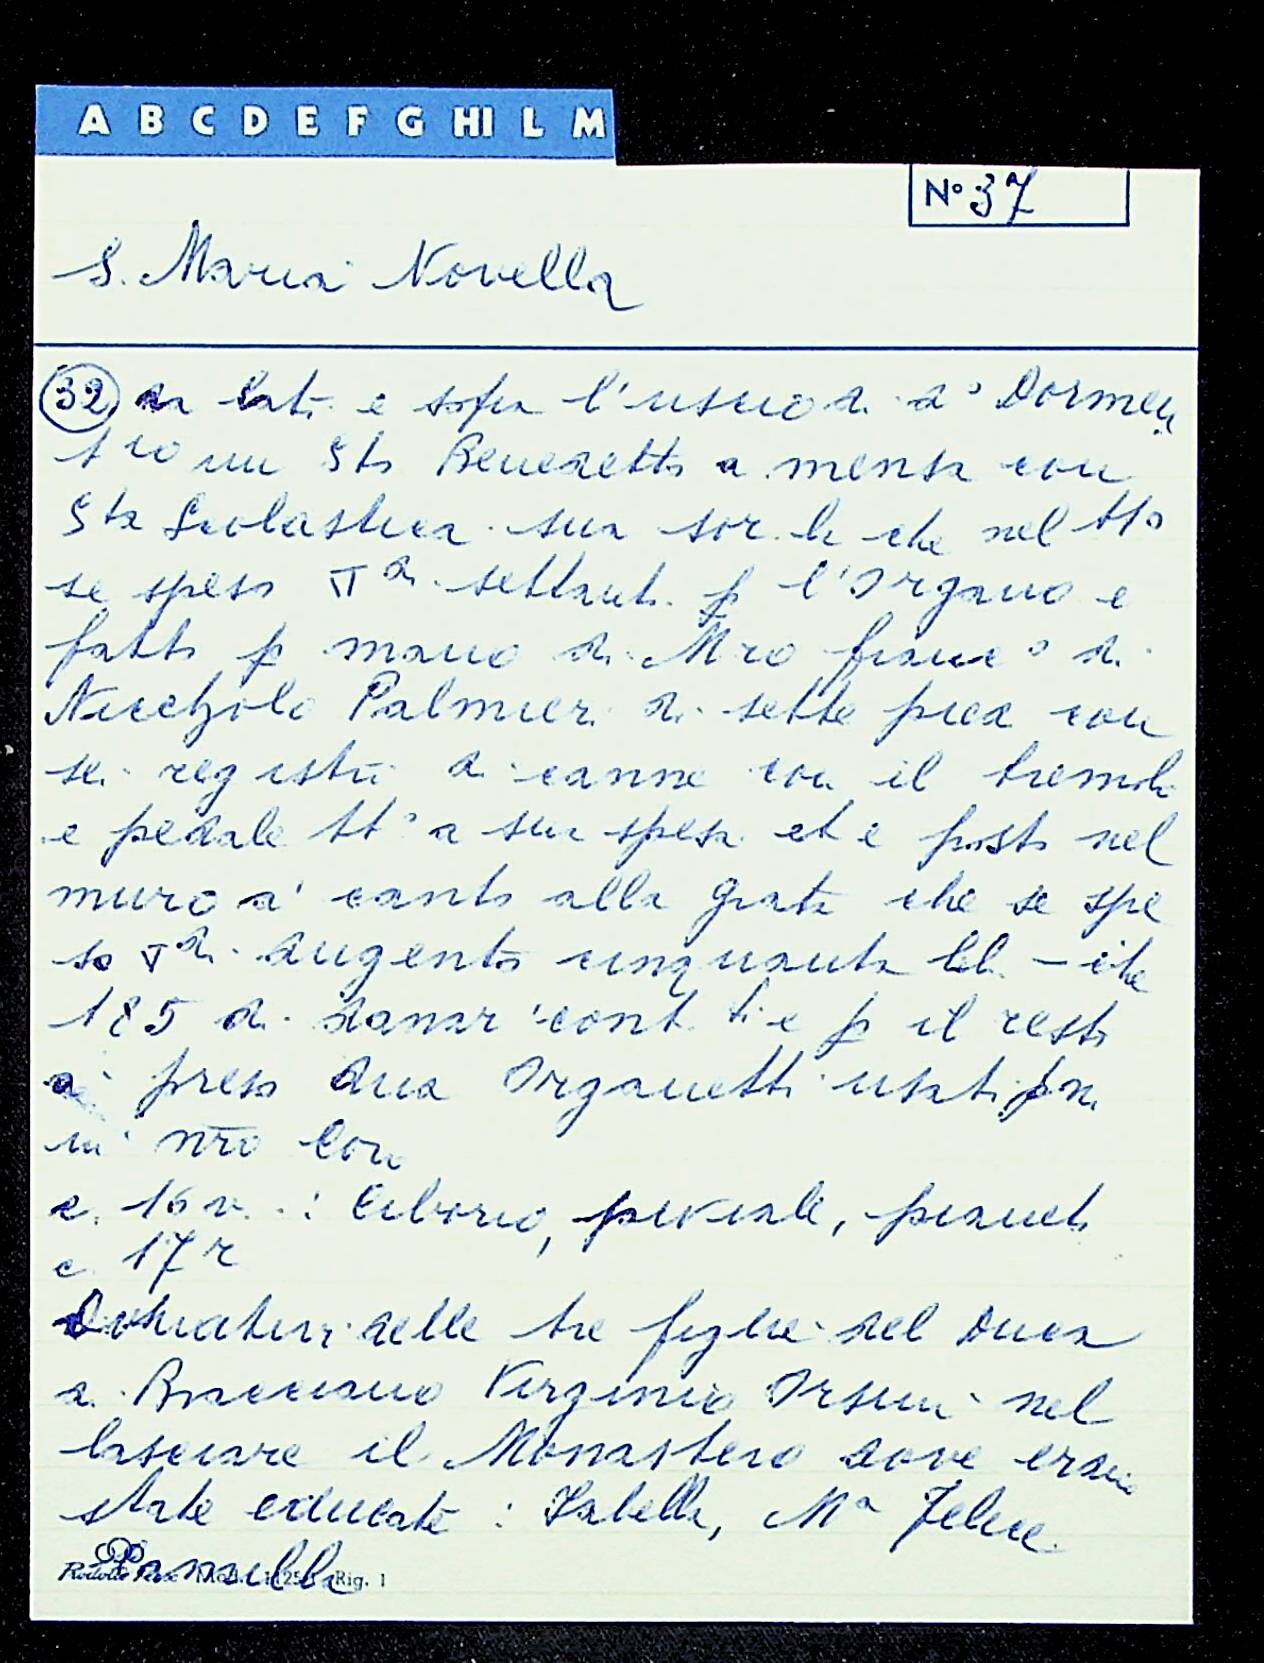 A B C D E F G HI L M
N° 37
S. Maria Novella
32 da lati e sopra l'uscio di d° Dormen
torio un Sto Benedetto a mensa con
Sta Scolastica sua sor. la che nel tto
se speso di settanta p l'Organo e
fatto p mano di Mro Franc° di
Niccholo Palmieri di sette piedi con
sei registri di canne con il tremolo
e pedale tt° a sua spesa et è posto nel
muro a' canto alla grata che se spe
so di dugento cinquanta cioè
185 di danari cont. ti e p il resto
a' preso dua Organetti usati
in nro Coro
c. 16 v. : Ciborio, piviale, pianeta
c. 17 r
Donativi delle tre figlie del Duca
di Bracciano Virginio Orsini nel
lasciare il Monastero dove erano
state educate : Isabella, Mª Felice
Camilla
Rig. 1